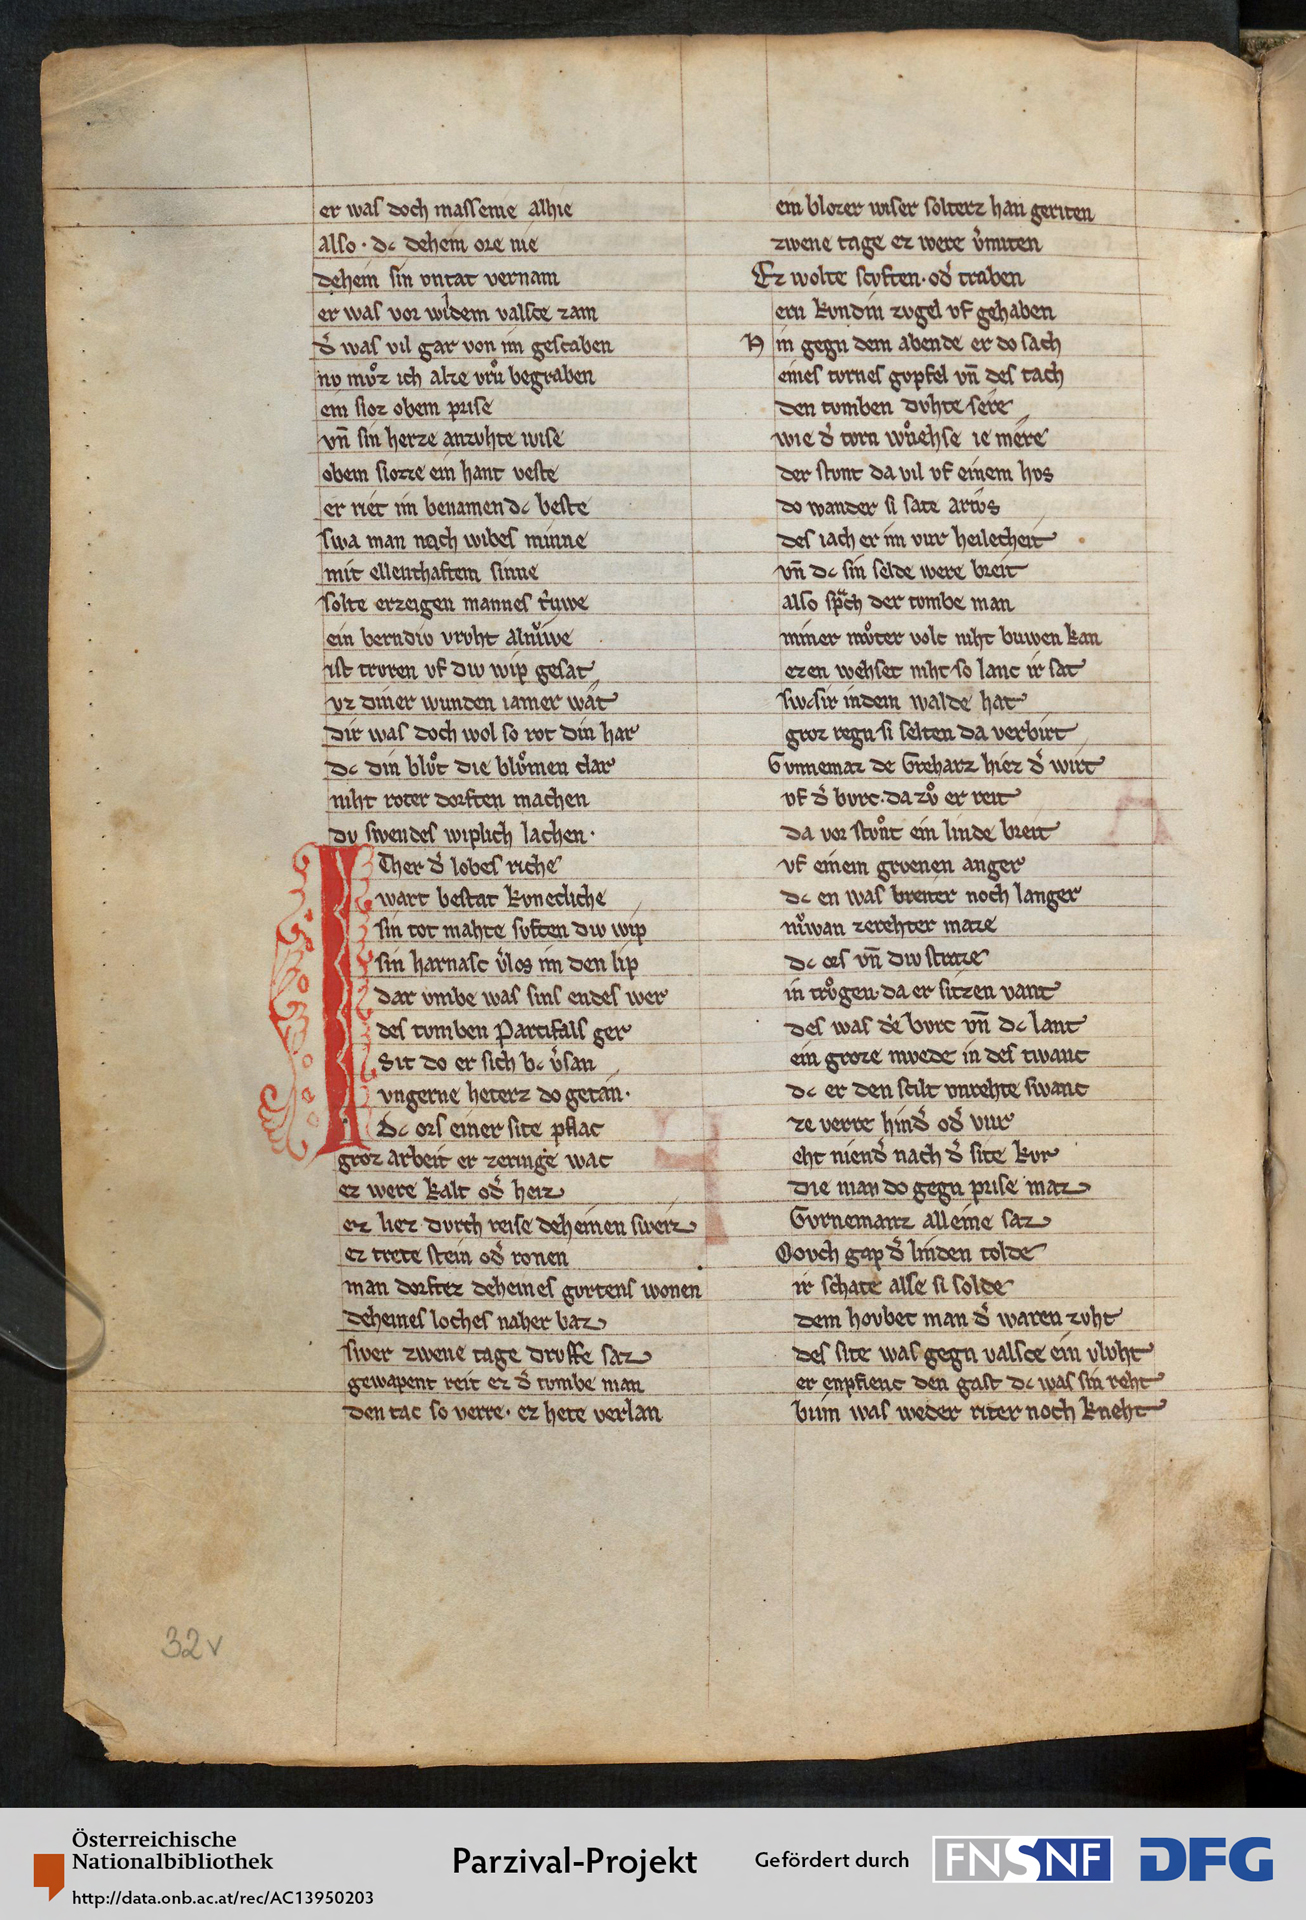 er was doch massenie alhie
also · dc dehein ore nie
dehein sin vntat vernam
er was vor wildem valsce zam
d͛ was vil gar von im gescaben
nv mv̊z ich alze vrv̊ begraben
ein sloz obem prise
vn̄ sin herze anzvhte wise
obem slozze ein hant veste
er riet im benamen dc beste
swa man nach wibes minne
mit ellenthaftem sinne
solte erzeigen mannes trͥuwe
ein berndiv vrvht alnv̍we
ist trvren vf div wip gesat
vz diner wunden iamer wat
dir was doch wol so rot din har
dc din blv̊t die blv̊men clar
niht roter dorften machen
dv swendes wiplich lachen ·
Ither d͛ lobes riche
wart bestat kvnecliche
sin tot mahte svften div wip
sin harnasc v͛los im den lip
dar vmbe was sins endes wer
des tvmben Parcifals ger
Sit do er sich bc v͛san
vngerne heterz do getan ·
dc ors einer site pflac
groz arbeit er zeringe wac
ez were kalt od͛ heiz
ez liez dvrch reise deheinen sweiz
ez trete stein od͛ ronen
man dorftez deheines gvrtens wonen
deheines loches naher baz
swer zwene tage drvffe saz
gewapent reit ez d͛ tvmbe man
den tac so verre · ez hete verlan
ein blozer wiser solterz han geriten
zwene tage ez were v͛miten
Er wolte scvften · od͛ traben
ern kvndin zvgel vf gehaben
Hin gegn dem abende er do sach
eines tvrnes gvpfel vn̄ des tach
den tvmben dvhte sere
wie d͛ torn wv̊hse ie mere
der stvnt da vil vf einem hvs
do wander si sate artvs
des iach er im vur heilecheit
vn̄ dc sin selde were breit
also spͣch der tvmbe man
miner mv̊ter volc niht buwen kan
ezen wehset niht so lanc ir sat
swc sir indem walde hat
groz regn si selten da verbirt
Gvnnemaz de Greharz hiez d͛ wirt
vf d͛ bvrc · da zv̊ er reit
da vor stv̊nt ein linde breit
vf einem grvenen anger
dc en was breiter noch langer
nv̍wan zerehter maze
dc ors vn̄ div straze
in trv̊gen · da er sitzen vant
des was de bvrc vn̄ dc lant
ein groze mvede in des twanc
dc er den scilt vnrehte swanc
ze verre hind͛ od͛ vur
eht niend͛ nach d͛ site kvr
die man do gegn prise maz
Gvrnemanz alleine saz
Oovch gap d͛ linden tolde
ir schate alse si solde
dem hovbet man d͛ waren zvht
des site was gegn valsce ein vlvht
er enpfienc den gast dc was sin reht
biim was weder riter noch kneht
32v
Österreichische
Nationalbibliothek
http://data.onb.ac.at/rec/AC13950203
Parzival-Projekt
Gefördert durch
FNSNF
DFG